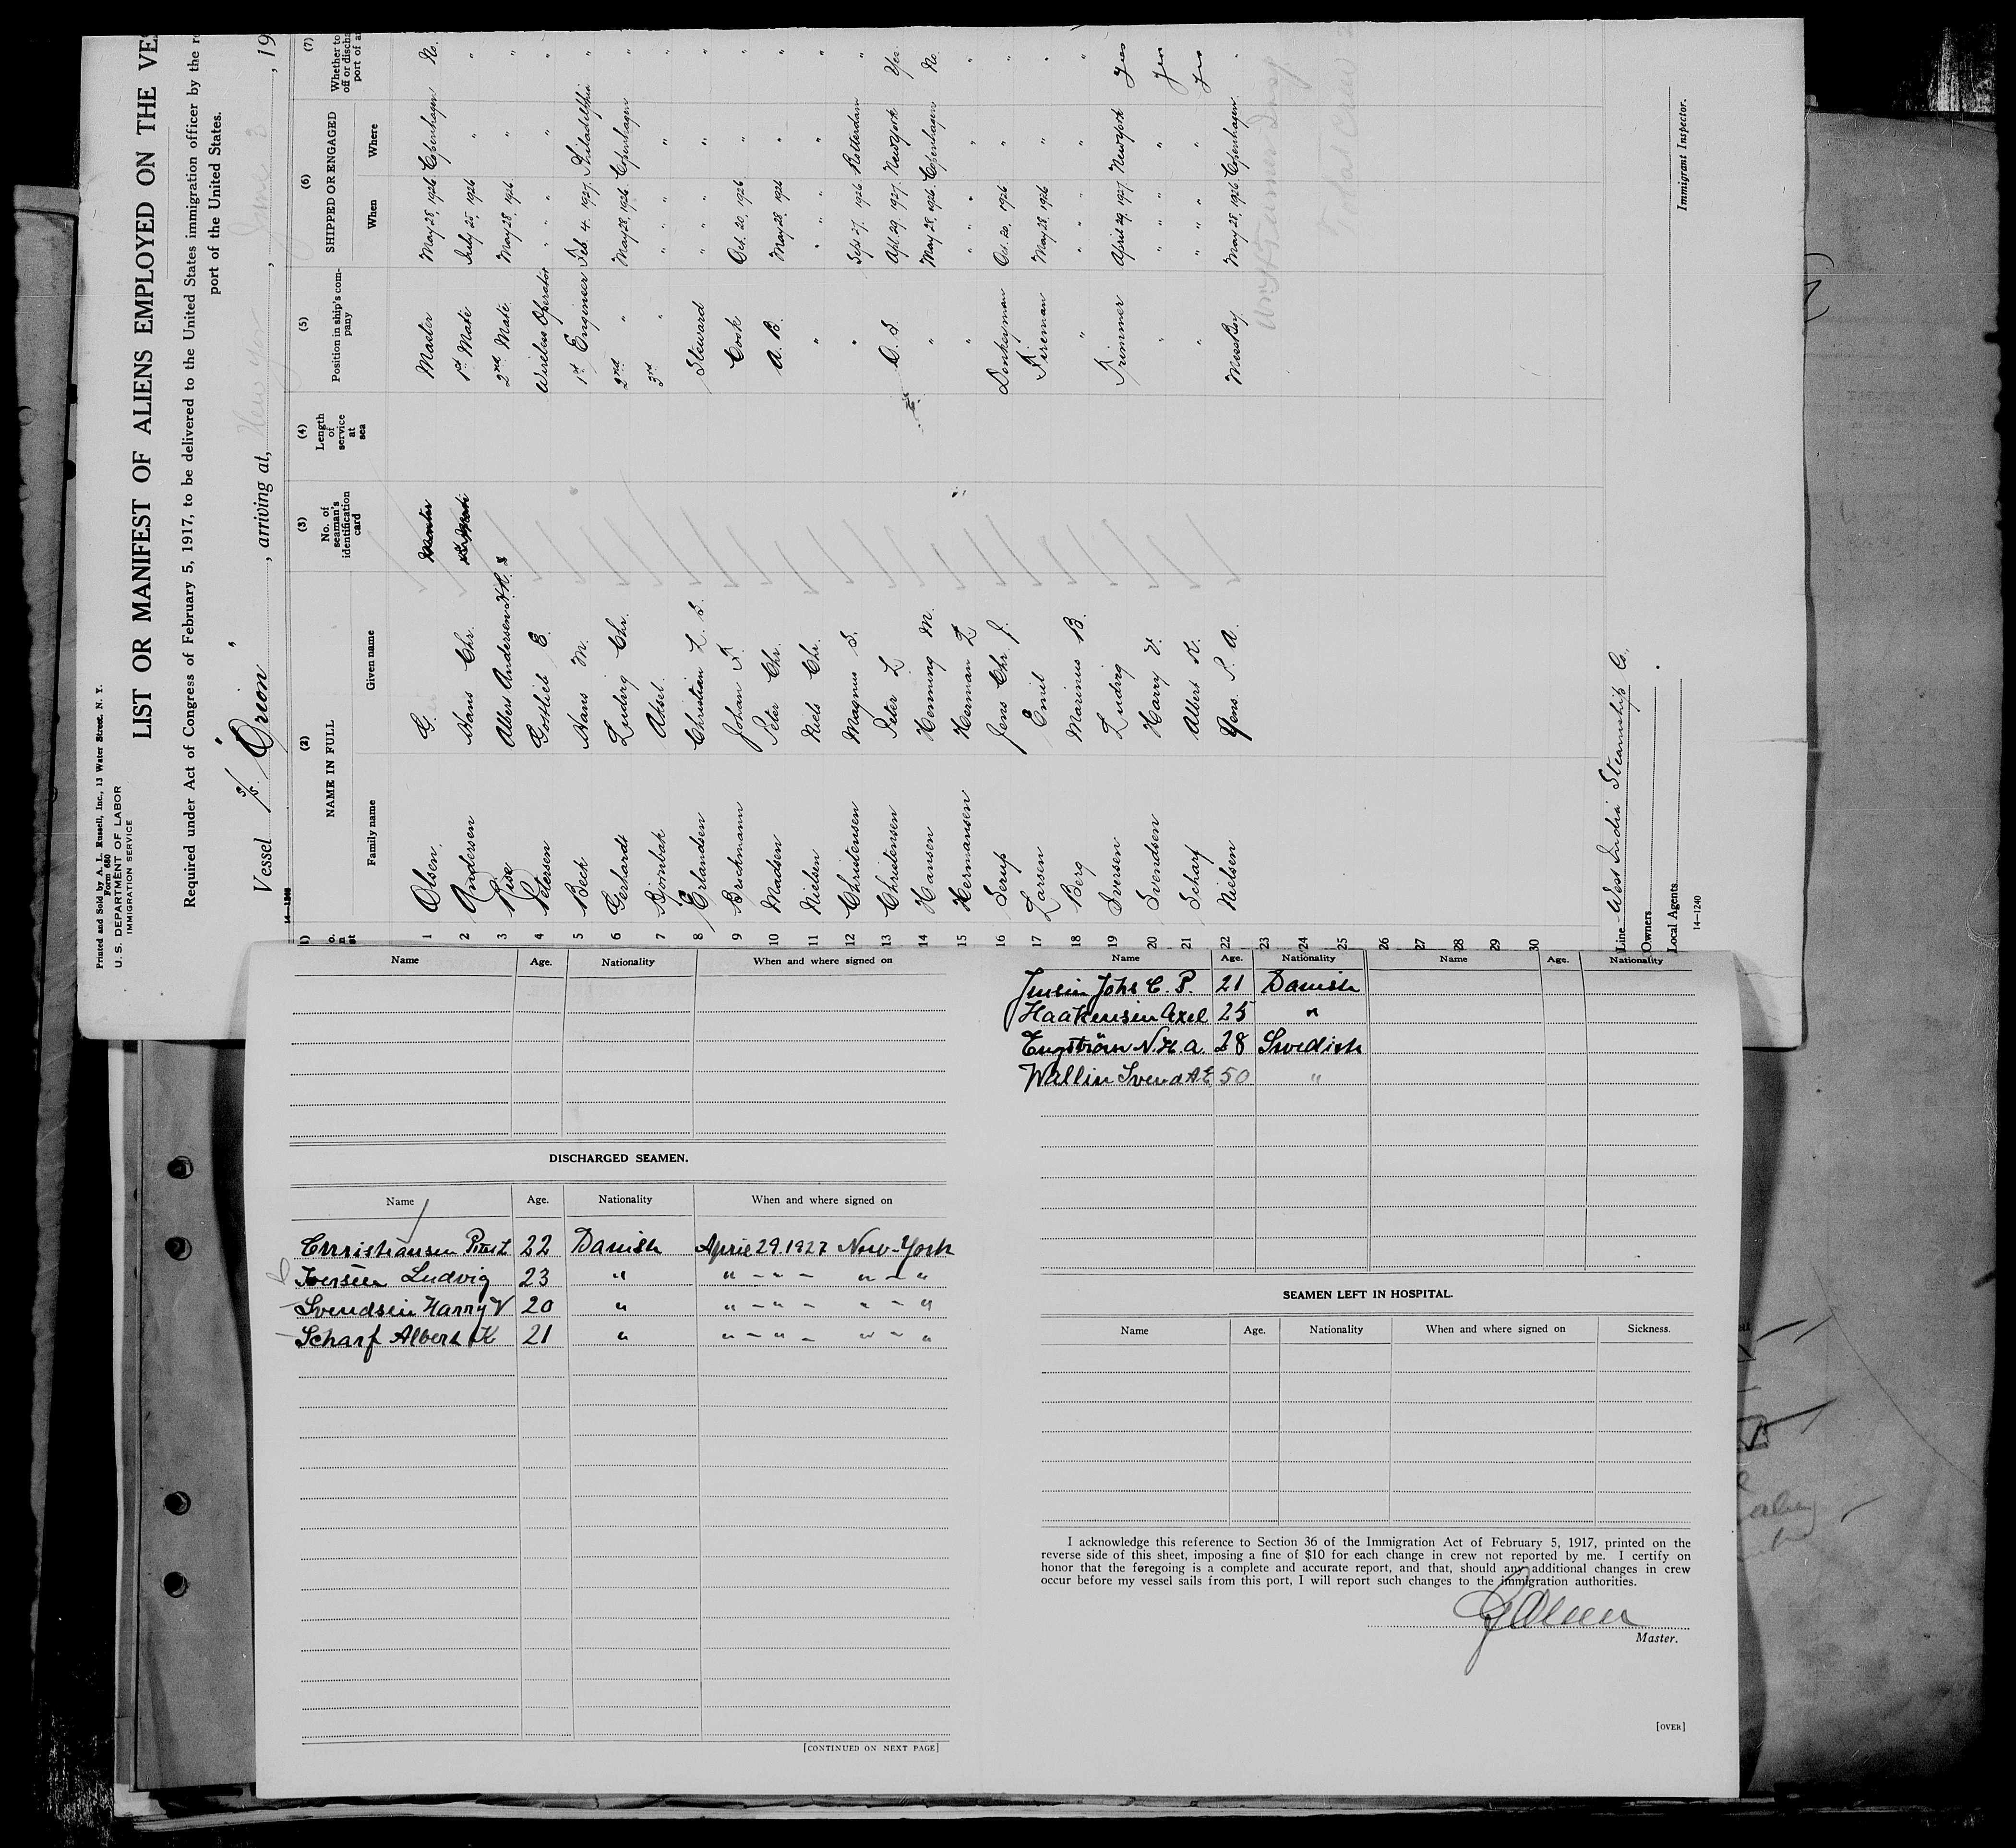 Printed and Sold by A. L. Russell, Inc., 13 Water Street, N. Y.
Form 680
U. S. DEPARTMENT OF LABOR
IMMIGRATION SERVICE
LIST OR MANIFEST OF ALIENS EMPLOYED ON THE VES
Required under Act of Congress of February 5, 1917, to be delivered to the United States immigration officer by the re
port of the United States.
Vessel s/s. "Orion", arriving at, New York, June 2, 19
(2) NAME IN FULL
Family name Given name
(3) No. of seaman's identification card
(4) Length of service at sea
(5) Position in ship's company
(6) SHIPPED OR ENGAGED
When Where
(7) Whether to off or discha port of a
1 Olsen G. Master May 28, 1926 Copenhagen No.
2 Andersen Hans Chr. 1st Mate July 25, 1926 " "
3 Rise Albert Andersen 2nd Mate May 28, 1926 " "
4 Petersen Gottlieb E. Wireless Operator " " " "
5 Beck Hans M. 1st Engineer Feb. 4. 1927. Philadelphia "
6 Gerhardt Ludvig Chr. 2nd " May 28, 1926 Copenhagen "
7 Bornbak Aksel. 3rd " " " " "
8 Erlandsen Christian L. S. Steward " " " "
9 Brickmann Johan F. Cook Oct. 20, 1926 " "
10 Madsen Peter Chr. A. B. May 28. 1926 " "
11 Nielsen Niels Chr. " " " " "
12 Christensen Magnus S. " Sept 27. 1926 Rotterdam "
13 Christensen Peter L O. S. Apl. 29. 1927. New York Yes.
14 Hansen Henning M. " May 28, 1926. Copenhagen No
15 Hermansen Herman L " " " " "
16 Serup Jens Chr. J. Donkeyman Oct. 20, 1926 " "
17 Larsen Emil Fireman May 28. 1926 " "
18 Berg Marinus B. " " " " "
19 Iversen Ludvig Trimmer April 29. 1927. New York Yes
20 Svendsen Harry V. " " " " Yes
21 Scharf Albert K. " " " " Yes
22 Nielsen Jens P. A. Mess Boy May 28, 1926. Copenhagen. "
23
24
25
26
27
28
29
30
Line West India Steamship Co.
Owners
Local Agents
Immigrant Inspector.
14—1240
Name Age. Nationality When and where signed on
DISCHARGED SEAMEN.
Name Age. Nationality When and where signed on
Christiansen Peter L 22 Danish April 29. 1927 New-York
Iversen Ludvig 23 " " - " - " - "
Svendsen Harry V 20 " " - " - " - "
Scharf Albert K 21 " " - " - " - "
[CONTINUED ON NEXT PAGE]
Name Age. Nationality Name Age. Nationality
Jensen Johs C. P. 21 Danish
Haakensen Axel 25 "
Engström N. H. A. 28 Swedish
Wallin Svend A E 50 "
SEAMEN LEFT IN HOSPITAL.
Name Age. Nationality When and where signed on Sickness.
I acknowledge this reference to Section 36 of the Immigration Act of February 5, 1917, printed on the
reverse side of this sheet, imposing a fine of $10 for each change in crew not reported by me. I certify on
honor that the foregoing is a complete and accurate report, and that, should any additional changes in crew
occur before my vessel sails from this port, I will report such changes to the immigration authorities.
G Olsen
Master.
[OVER]